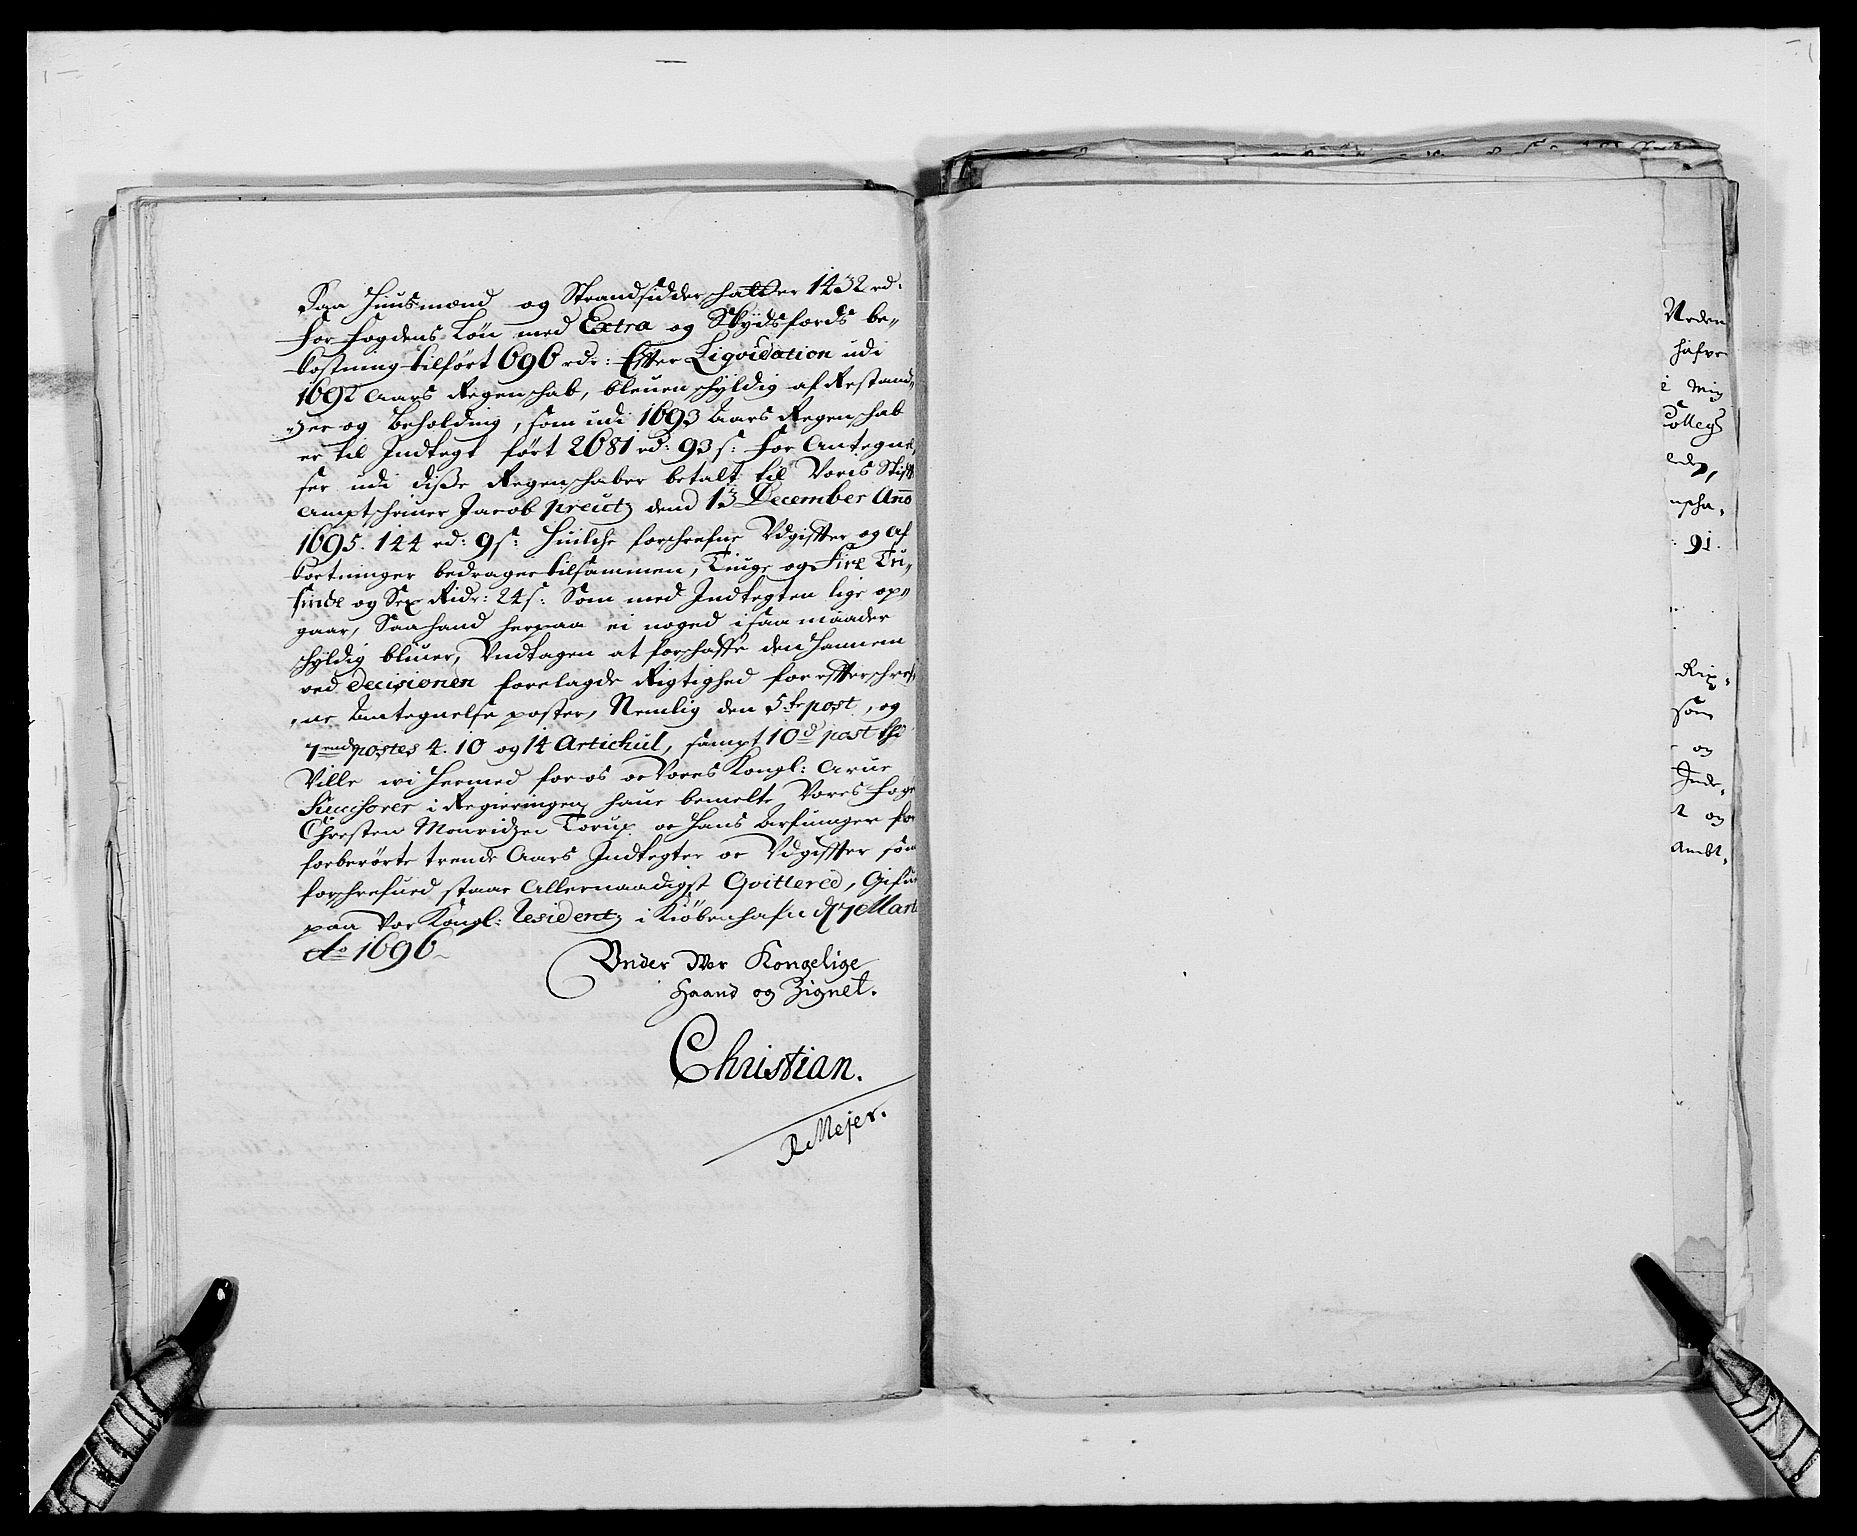 Saa Huusmænd og Strandsidderschatter 1432 rd:
for fogdens Løn med Extra og Skydsfærds be„
kostning tilført 696 rdr: Effter Liqvidation udi
1692 Aars Regenschab, bleuen schyldig af Restand„
„zer og Beholding, som udi 1693 Aars Regenschab
er til Indtegt ført 2681 rd: 93 s: for Antegnel„
ser udi diße Regenschaber betalt til Voris Stifft
Amptschriuer Jacob Preutz dend 13 December Anno
1695. 144 rd: 9 s: Huilche forschrefne Udgiffter og Af
kortninger bedrager tilsammen, Tiuge og Fire Tu„
sinde og Sex Ridr: 24 s: Som med Indtegten lige op„
gaar, Saa hand herpaa ei noged i saa maader
schyldig bliuer, Undtagen at forschaffe den Hannem
ved Decisionen forelagde Rigtighed for effterschref„
„ne Antegnelse poster, Nemlig den 5te post, og
7end postes 4. 10 og 14 Artichul, sampt 10d post thi
Ville wi Hermed for os oc Vores Kongl: Arue
Successorer i Regieringen haue bemelte Vores Foge
Christen Mouridzen Torup oc Hans Arfuinger for
forberørte trende Aars Indtegter oc Udgiffter som
forschrefued staar Allernaadigst Qvittered, Gifuet
paa Vor Kongl: Residentz i Kiøbenhafn d 7 Marti
Ao 1696
Under Wor Kongelige
Haand og Zignet.
Christian.
Meyer.
hafve
i Mig
91.
som
og
Inde„
t og
Ambt„